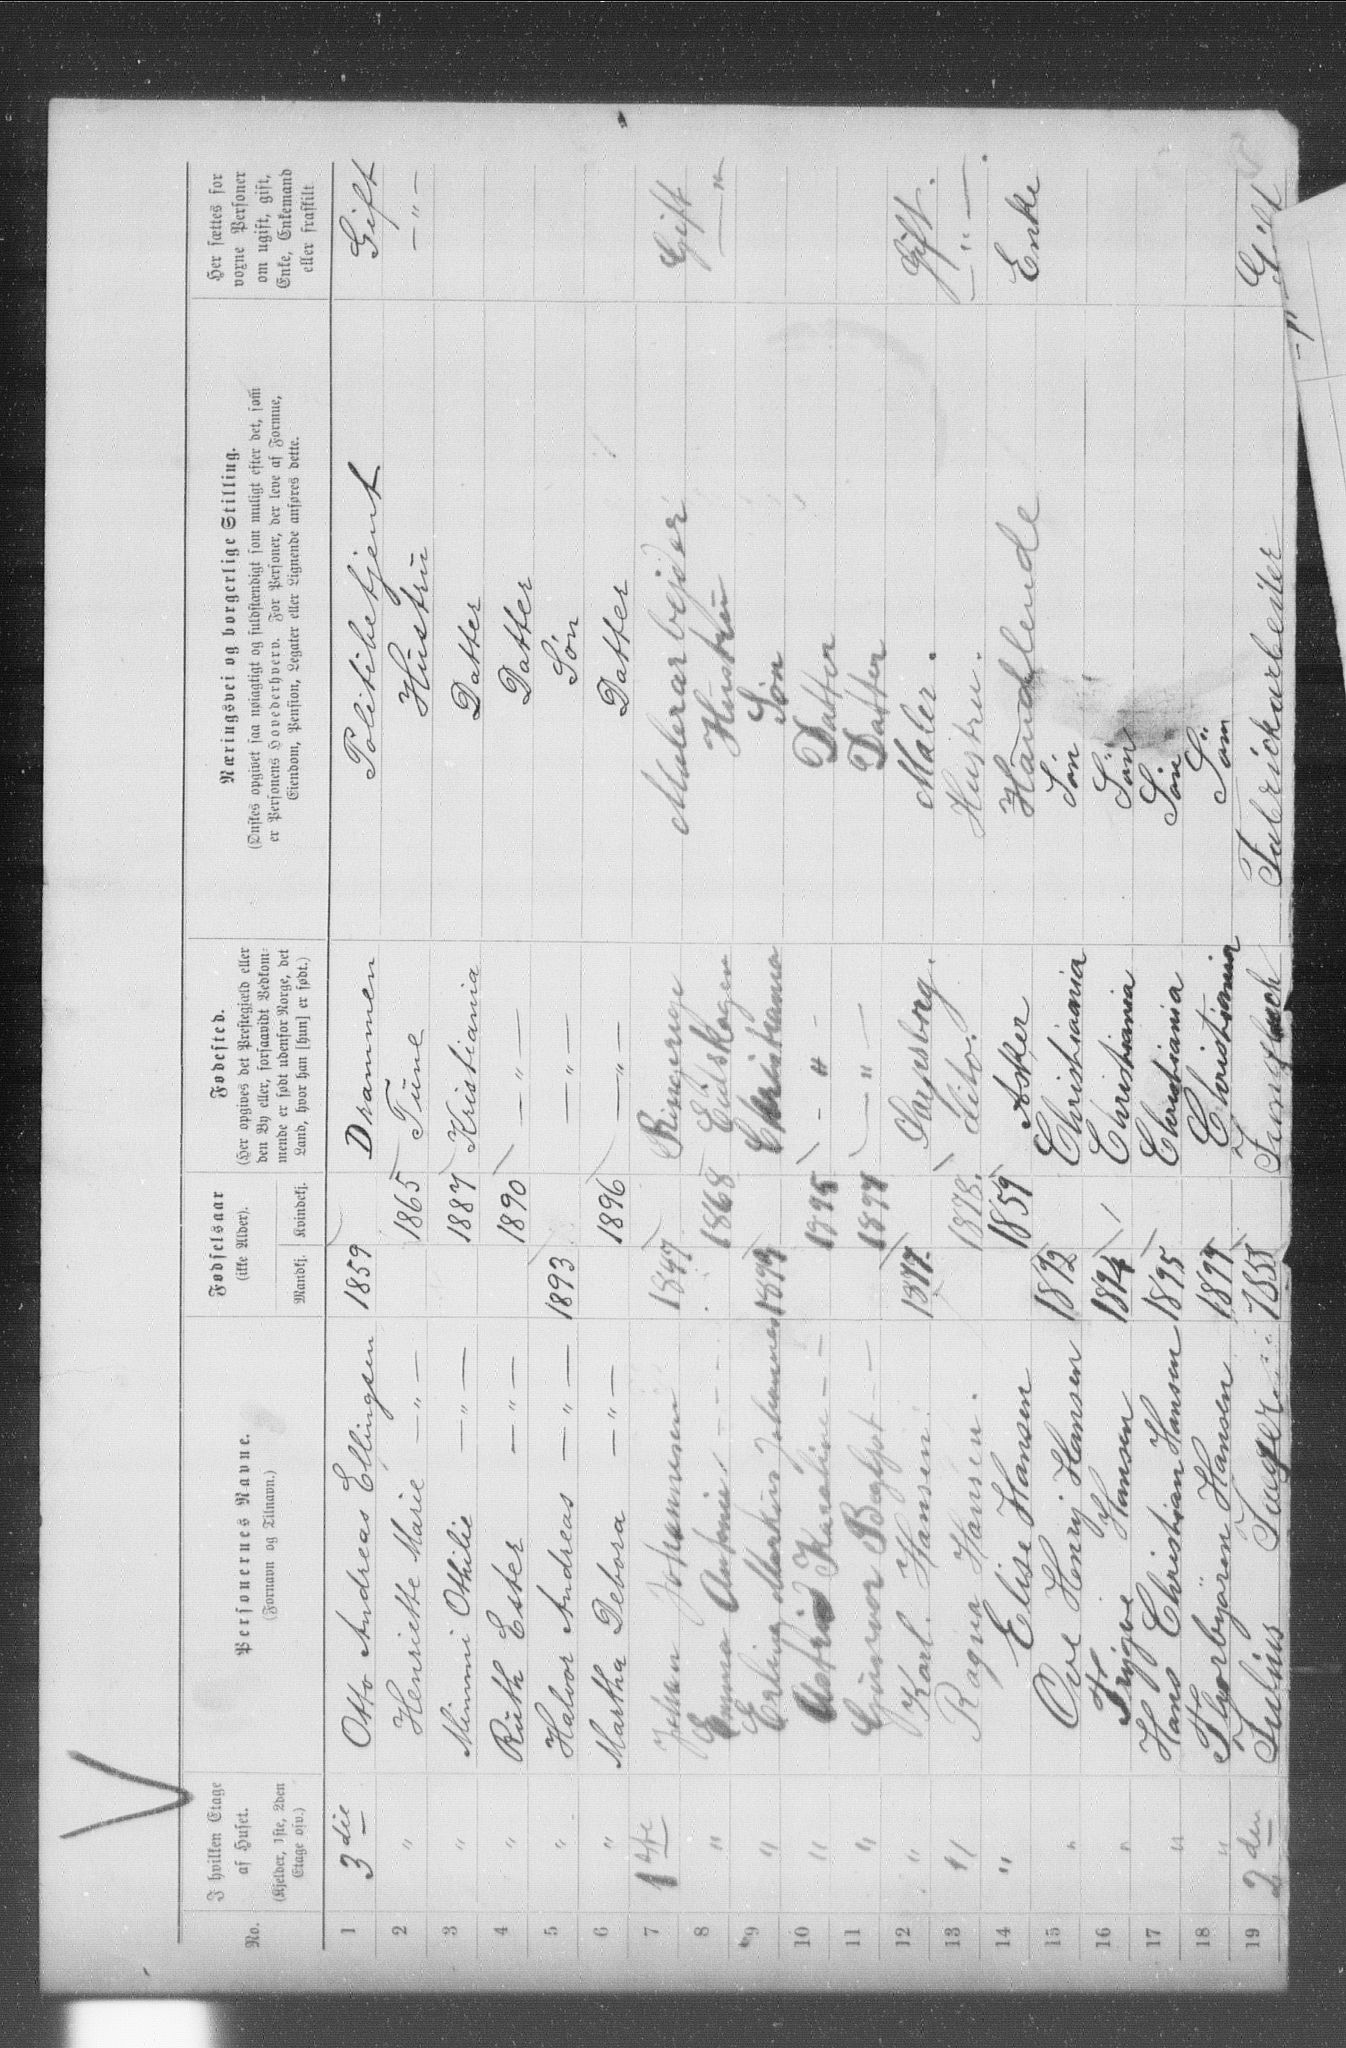 No.
I hvilken Etage af Huset.
(Kjelder, 1ste, 2den Etage osv.)
Personernes Navne.
(Fornavn og Tilnavn.)
Fødselsaar
(ikke Alder).
Mandkj. Kvindekj.
Fødested.
(Her opgives det Præstegjæld eller
den By eller, forsaavidt Vedkom-
mende er født udenfor Norge, det
Land, hvor han [hun] er født.)
Næringsvei og borgerlige Stilling.
(Ønskes opgivet saa nøiagtigt og fuldstændigt som muligt efter det, som
er Personens Hovederhverv. For Personer, der leve af Formue,
Eiendom, Pension, Legater eller Lignende anføres dette.
Her sættes for
voxne Personer
om ugift, gift,
Enke, Enkemand
eller fraskilt
1 3die Otto Andreas Ellingsen 1859 Drammen Politibetjent Gift
2 " Henriette Marie —"— 1865 Tune Hustru —"—
3 " Mimmi Othilie —"— 1887 Kristiania Datter
4 " Ruth Ester —"— 1890 —"— Datter
5 " Halvor Andreas —"— 1893 —"— Søn
6 " Martha Debora —"— 1896 —"— Datter
7 1ste Johan Johannesen Ringerige Malerarbejder Gift
8 " Emma Antonie 1868 Eidskogen Hustru —"—
9 " Erling Markus Johannes Christiania Søn
10 " Astrid Karoline — 1895 - " - Datter
11 " Gunvor Bergljot — —"— Datter
12 " Karl. Hansen. 1877. Sarpsborg. Maler. Gift.
13 " Ragna Hansen. 1878. dito. Hustru. —"—
14 " Elise Hansen 1859 Asker Handlende Enke
15 " Ove Henry Hansen 1892 Christiania Søn
16 " Trygve Hansen 1894 Christiania Søn
17 " Hans Christian Hansen 1895 Christiania Søn
18 " Thorbjørn Hansen 1899 Christiania Søn
19 2den Julius Fabrickarbeiter Gift
—"